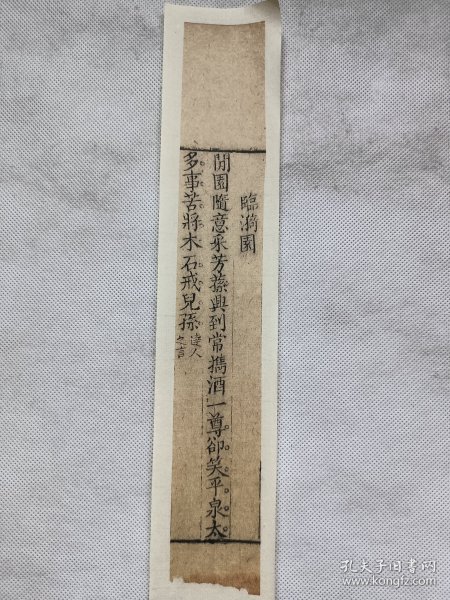 臨漪園
閒園隨意采芳蓀興到常攜酒一尊卻笑平泉太
多事苦將木石戒兒孫達人之言
孔夫子旧书网
www.kongfz.com